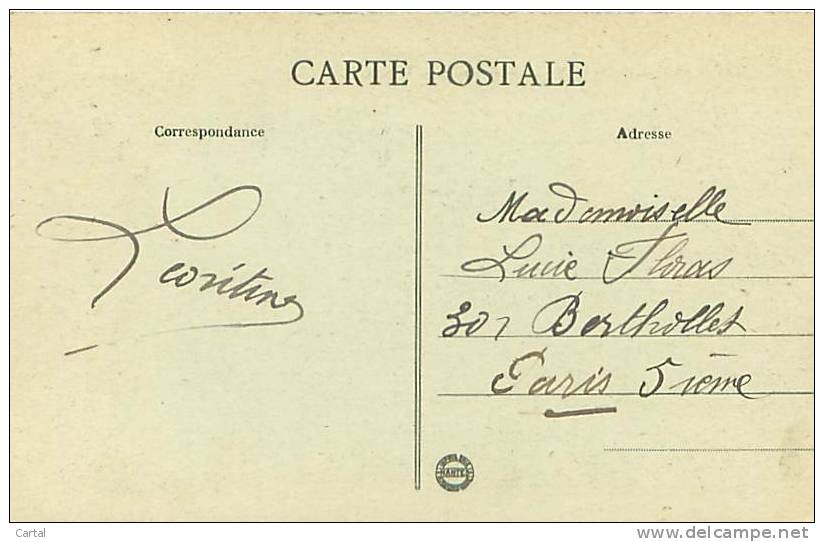 CARTE POSTALE
Correspondance
Adresse
Mademoiselle
Lucie Floras
30, Berthollet
Paris 5ième
ANTE
Cartal
delcampe.net